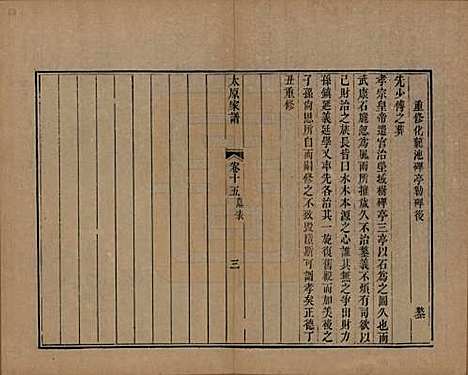 重修化龍池碑亭勒碑後
鏊
先少傅之葬
孝宗皇帝遣官治塋域樹碑亭三亭以石為之圖久也而
武康石脆忽為風雨所摧歲久不治墓義不得有司欲以
己財治之族長曰木本水源之心誰其無之爭出財力
孫鎮延義延學又率先各治其一旋復舊觀而加美後之
子孫尚思所自而嗣修之不致毀墮斯可謂孝矣正德丁
丑重修
太原家譜
卷十五墓表
三